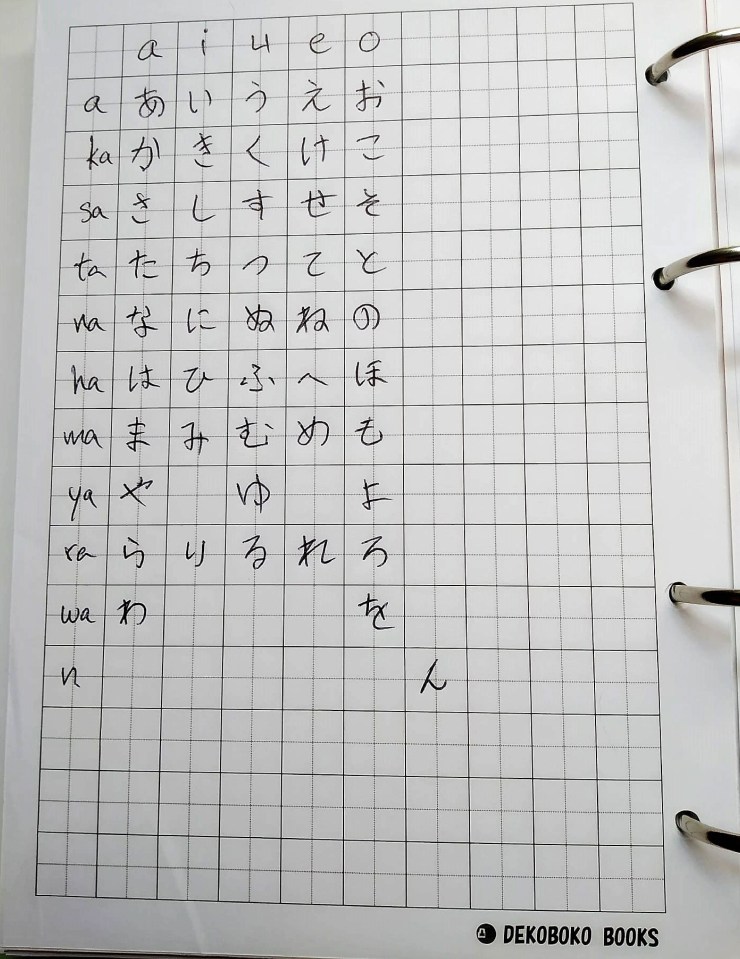 a i u e o
a あ い う え お
ka か き く け こ
sa さ し す せ そ
ta た ち つ て と
na な に ぬ ね の
ha は ひ ふ へ ほ
ma ま み む め も
ya や ゆ よ
ra ら り る れ ろ
wa わ を
n ん
DEKOBOKO BOOKS